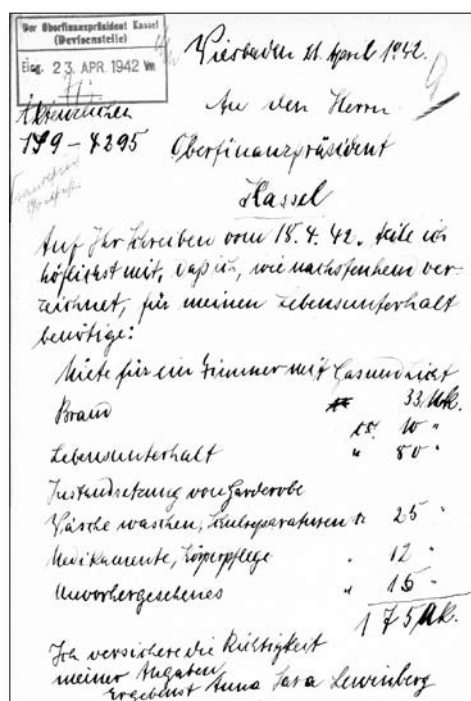 Der Oberfinanzpräsident Kassel
(Devisenstelle)
Eing. 23. APR. 1942 Vm
Wiesbaden 21. April 1942.
An den Herrn
Aktenzeichen
Oberfinanzpräsident
Kassel
Auf Ihr Schreiben vom 18.4.42. teile ich
höflichst mit, daß ich, wie nachstehend ver-
zeichnet, für meinen Lebensunterhalt
benötige:
Miete für ein Zimmer mit Gas und Licht
33 Mk.
Brand 10 "
Lebensunterhalt " 80 "
Instandsetzung von Garderobe
Wäsche waschen, Schuhreparaturen 25 "
Medikamente, Körperpflege " 12 "
Unvorhergesehenes " 15 "
175 Mk.
Ich versichere die Richtigkeit
meiner Angaben
Ergebenst Anna Sara Lewinberg